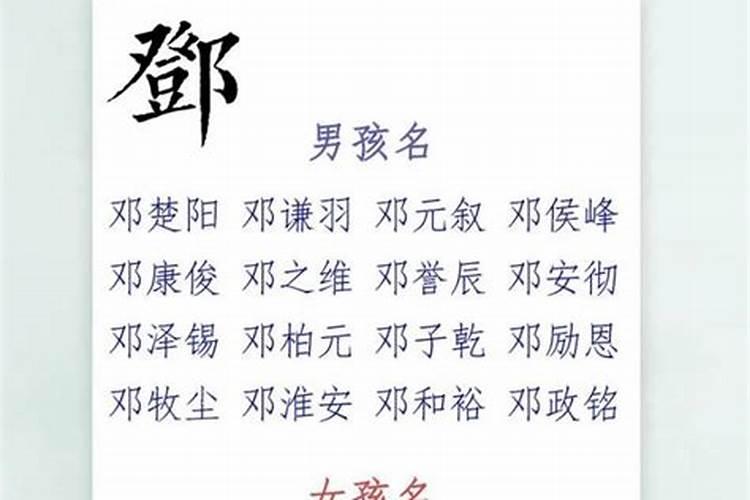 鄧
男孩名
邓楚阳 邓谦羽 邓元叙 邓侯峰
邓康俊 邓之维 邓誉辰 邓安彻
邓泽锡 邓柏元 邓子乾 邓励恩
邓牧尘 邓淮安 邓和裕 邓政铭
女孩名